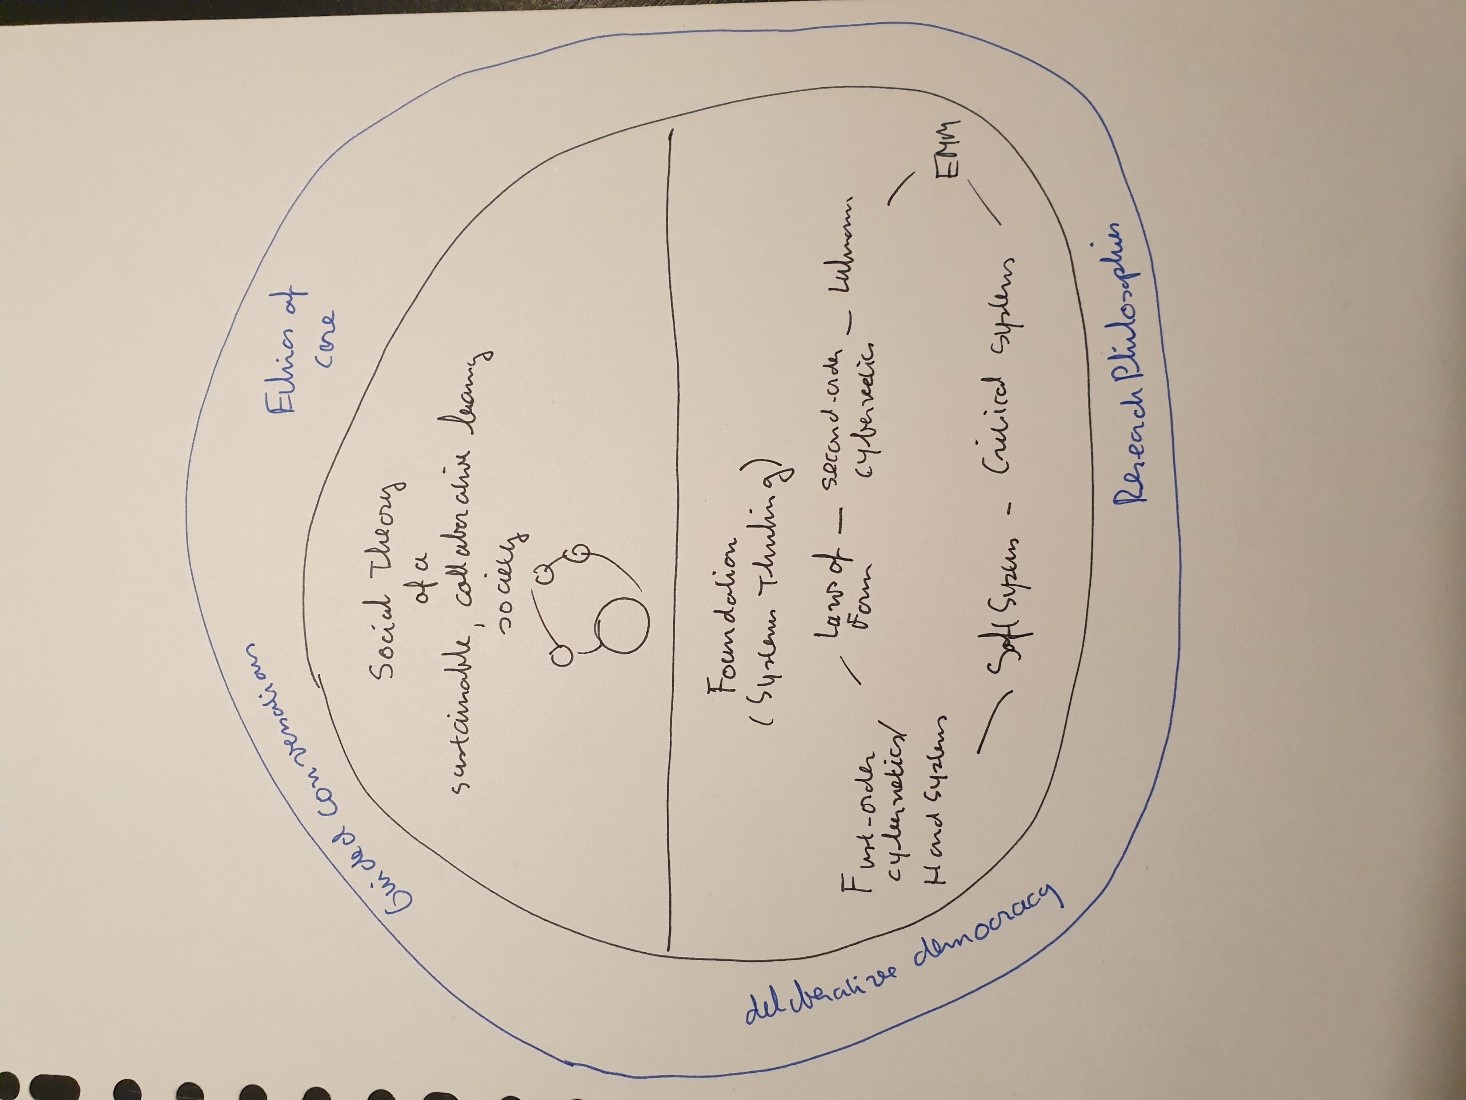 Ethics of
care
Guided Conversation
Social Theory
of a
sustainable, collaborative learning
society
Foundation
(Systems Thinking)
First-order
cybernetics/
Hard Systems
Laws of
Form
second-order
cybernetics
Luhmann
EMM
Soft Systems - Critical Systems
deliberative democracy
Research Philosophies